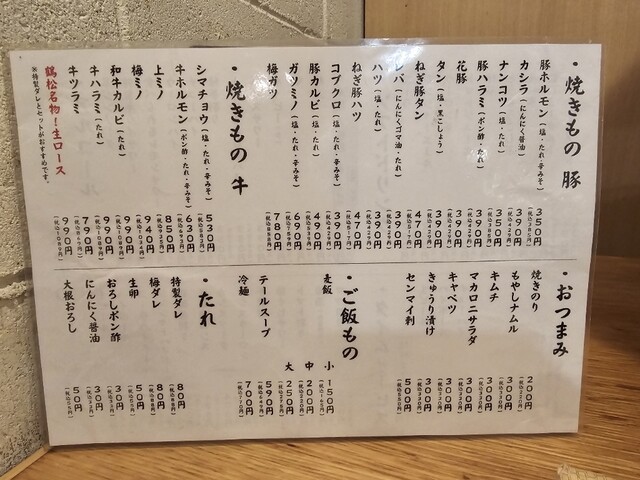 ・焼きもの 豚
豚ホルモン（塩・たれ・辛みそ） 350円（税込385円）
カシラ（にんにく醤油） 390円（税込429円）
ナンコツ（塩・たれ） 350円（税込385円）
豚ハラミ（ポン酢・たれ） 390円（税込429円）
花豚 390円（税込429円）
タン（塩・黒こしょう） 390円（税込429円）
ねぎ豚タン 470円（税込517円）
レバ（にんにくゴマ油・たれ） 390円（税込429円）
ハツ（塩・たれ） 390円（税込429円）
ねぎ豚ハツ 470円（税込517円）
コブクロ（塩・たれ・辛みそ） 390円（税込429円）
豚カルビ（塩・たれ） 490円（税込539円）
ガツミノ（塩・たれ・辛みそ） 690円（税込759円）
梅ガツ 780円（税込858円）
・焼きもの 牛
シマチョウ（塩・たれ・辛みそ） 530円（税込583円）
牛ホルモン（ポン酢・たれ・辛みそ） 630円（税込693円）
上ミノ 850円（税込935円）
梅ミノ 940円（税込1034円）
和牛カルビ（たれ） 990円（税込1089円）
牛ハラミ（たれ） 990円（税込1089円）
牛ツラミ 790円（税込869円）
鶴松名物！生ロース 990円（税込1089円）
※特製ダレとセットがおすすめです。
・おつまみ
焼きのり 200円（税込220円）
もやしナムル 300円（税込330円）
キムチ 300円（税込330円）
マカロニサラダ 300円（税込330円）
キャベツ 300円（税込330円）
きゅうり漬け 300円（税込330円）
センマイ刺 500円（税込550円）
・ご飯もの
麦飯 小 150円（税込165円）
中 200円（税込220円）
大 250円（税込275円）
テールスープ 590円（税込649円）
冷麺 700円（税込770円）
・たれ
特製ダレ 80円（税込88円）
梅ダレ 80円（税込88円）
生卵 50円（税込55円）
おろしポン酢 30円（税込33円）
にんにく醤油 30円（税込33円）
大根おろし 50円（税込55円）